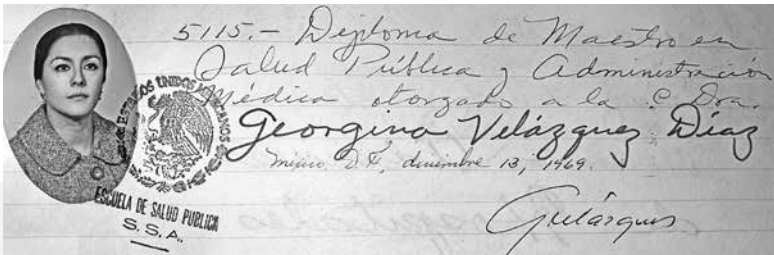 5115.- Diploma de Maestro en
Salud Pública y Administración
Médica otorgado a la C. Dra.
Georgina Velázquez Díaz
México, D.F., diciembre 13, 1969.
ESTADOS UNIDOS MEXICANOS
ESCUELA DE SALUD PUBLICA
S.S.A.